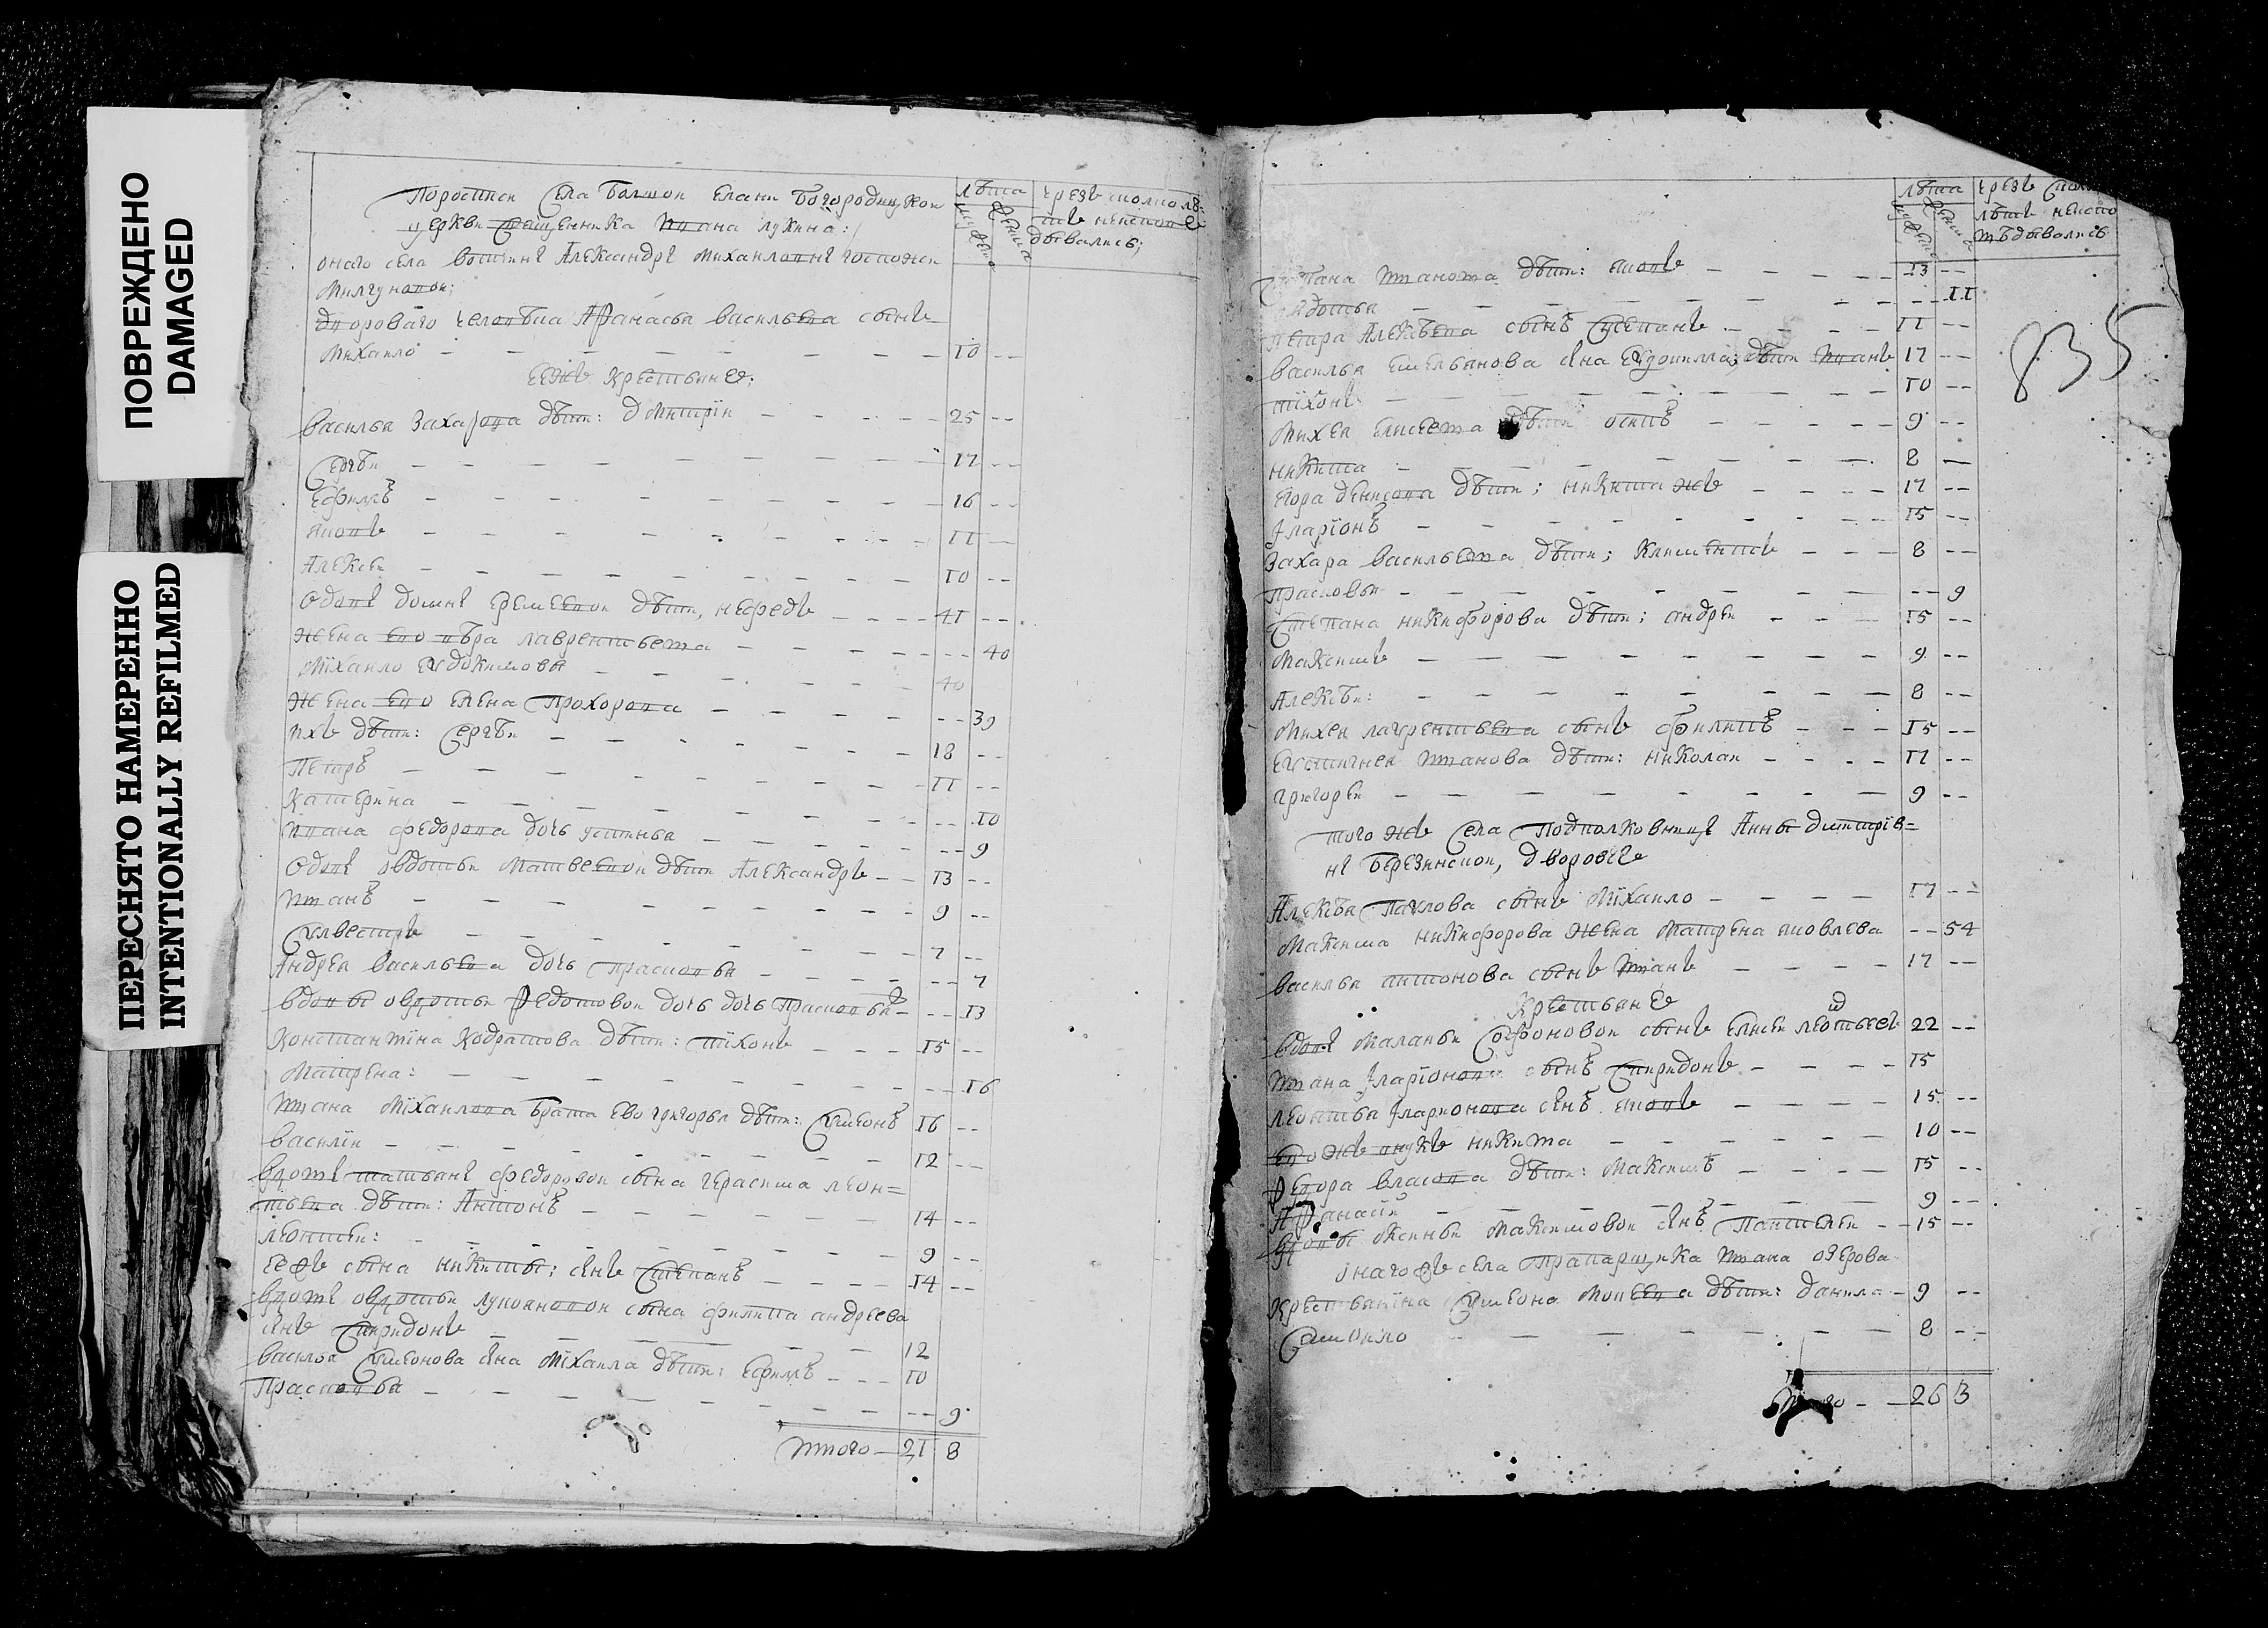 ПОВРЕЖДЕНО
DAMAGED
ПЕРЕСНЯТО НАМЕРЕННО
INTENTIONALLY REFILMED
Поросписи Села Балшои Елани Богородицкои
церкви Священника Ивана лукина:
лѣта
мужеска
женска
чрезъ сколко лѣ-
тъ неиспове
дывались;
оного села вотчинѣ Александрѣ Михаиловнѣ госпожи
Милгуновои;
дворового человѣка Афанасья васильева сынъ
Михаило 10
Ееже крестьянѣ:
василья Захарова дѣти: дмитріи 25
Сергѣи 17
Ефимъ 16
яковъ 11
Алексѣи 10
вдовѣ домнѣ Еремеевои дѣти, нефедъ 41
жена ево вѣра лаврентьева 40
Міхаило Евдокимовъ 40
жена ево елена Прохорова 39
ихъ дѣти: Сергѣи 18
Петръ 11
Катерина 10
ивана федорова дочь устинья 9
вдовѣ овдотьи Матвеевои дѣти Александръ 13
Иванъ 9
Силвестръ 7
Андрея васильева дочь прасковья 7
вдовы овдотьи Федотовои дочь дочь прасковья 13
Константіна Кодратова дѣти: тіхонъ 15
Матрена: 16
Ивана Міхаилова брата ево григорья дѣти: Симеонъ 16
василіи 12
вдовѣ татьянѣ федоровои сына герасима леон=
тьева дѣти: Антонъ 14
леонтеи: 9
Ееже сына никиты: сынъ Степанъ 14
вдовѣ овдотьи лукояновои сына филипа андреева
сынъ Спиридонъ 12
василья Симеонова сына Міхаила дѣти: Ефимъ 10
Прасковья 9
Итого 21 8
лѣта
мужеска
женска
чрезъ сколко
лѣтъ неиспо
вѣдывались
835
Степана Иванова дѣти: яковъ 13
овдотья 11
Петра Алексѣева сынъ Степанъ 11
василья Емельянова сына Евдокима дѣти Иванъ 17
тіхонъ 10
Михея Елисеева дѣти осипъ 9
никита 8
Егора денисова дѣти; никита жъ 17
Іларіонъ 15
Захара васильева дѣти; Климентъ 8
прасковья 9
Степана никифорова дѣти; андреи 15
Максимъ 9
Алексѣи: 8
Михея лаврентьева сынъ филипъ 15
Евстигнея Иванова дѣти: николаи 17
григореи 9
того жъ Села Подполковницѣ Анны дмитрів=
нѣ Березинскои, дворовые
Алексѣя Павлова сынъ Міхаило 17
Максима никифорова жена Матрена яковлева 54
василья антонова сынъ Иванъ 17
Крестьянѣ
вдовѣ Маланьи Сафоновои сынъ Елисеи леонтьевъ 22
Ивана Іларіонова сынъ Спиридонъ 15
леонтья Іларионова сынъ яковъ 15
Ево жъ внукъ никита 10
Федора власова дѣти: Максимъ 15
Афанасіи 9
вдовы Ксиньи Максимовои сынъ Пантелѣи 15
онагожъ села Прапарщика Ивана озерова
крестьяніна Симеона Моисеева дѣти: данила 9
Самоило 8
Итого 26 3